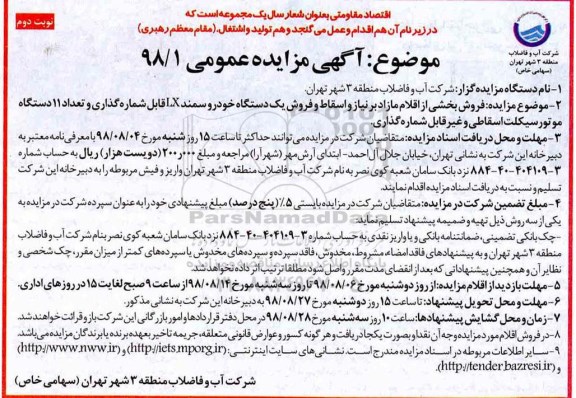 نوبت دوم
اقتصاد مقاومتی بعنوان شعار سال یک مجموعه است که
در زیر نام آن هم اقدام و عمل می گنجد و هم تولید و اشتغال. (مقام معظم رهبری)
شرکت آب و فاضلاب
منطقه ۳ شهر تهران
(سهامی خاص)
موضوع: آگهی مزایده عمومی ۹۸/۱
۱-نام دستگاه مزایده گزار: شرکت آب و فاضلاب منطقه ۳ شهر تهران.
۲-موضوع مزایده: فروش بخشی از اقلام مازاد بر نیاز و اسقاط و فروش یک دستگاه خودرو سمند LX قابل شماره گذاری و تعداد ۱۱ دستگاه
موتورسیکلت اسقاطی و غیر قابل شماره گذاری
۳-مهلت و محل دریافت اسناد مزایده: متقاضیان شرکت در مزایده می توانند حداکثر تا ساعت ۱۵ روز شنبه مورخ ۹۸/۰۸/۰۴ با معرفی نامه معتبر به
دبیرخانه این شرکت به نشانی تهران، خیابان جلال آل احمد- ابتدای آرش مهر (شهرآرا) مراجعه و مبلغ ۲۰۰,۰۰۰ (دویست هزار) ریال به حساب شماره
۳-۴۰۴۱۰۹-۴۰-۸۸۴ نزد بانک سامان شعبه کوی نصر به نام شرکت آب و فاضلاب منطقه ۳ شهر تهران واریز و فیش مربوطه را به دبیرخانه این شرکت
تسلیم و نسبت به دریافت اسناد مزایده اقدام نمایند.
۴- مبلغ تضمین شرکت در مزایده: متقاضیان شرکت در مزایده بایستی ۵٪ (پنج درصد) مبلغ پیشنهادی خود را به عنوان سپرده شرکت در مزایده به
یکی از سه روش ذیل تهیه و ضمیمه پیشنهاد تسلیم نماید
-چک بانکی تضمینی، ضمانتنامه بانکی و یا واریز نقدی به حساب شماره ۳-۴۰۴۱۰۹-۴۰-۸۸۴ نزد بانک سامان شعبه کوی نصر بنام شرکت آب و فاضلاب
منطقه ۳ تهران و به پیشنهادهای فاقد امضاء، مشروط، مخدوش، فاقد سپرده و سپرده های مخدوش یا سپرده های کمتر از میزان مقرر، چک شخصی و
نظایر آن و همچنین پیشنهاداتی که بعد از انقضای مدت مقرر واصل شود مطلقا ترتیب اثر داده نخواهد شد.
۵-مهلت بازدید از اقلام مزایده: از روز دوشنبه مورخ ۹۸/۰۸/۰۶ تا روز سه شنبه مورخ ۹۸/۰۸/۱۴ از ساعت ۹ صبح لغایت ۱۵ در روزهای اداری.
۶-مهلت و محل تحویل پیشنهاد: تا ساعت ۱۵ روز دوشنبه مورخ ۹۸/۰۸/۲۷ به دبیرخانه این شرکت به نشانی مذکور.
۷-زمان و محل گشایش پیشنهادها: ساعت ۱۰ روز سه شنبه مورخ ۹۸/۰۸/۲۸ در محل دفتر قراردادها و امور بازرگانی این شرکت باز و قرائت خواهند شد.
۸-در فروش اقلام مورد مزایده وجه آن نقدا و بصورت یکجا دریافت و هر گونه کسور و عوارض قانونی متعلقه، جریمه تاخیر بعهده برنده یا برندگان مزایده می باشد.
۹-سایر اطلاعات مربوطه در اسناد مزایده مندرج است. نشانی های سایت اینترنتی: (http://iets.mporg.ir) و (http://www.nww.ir) و
(http://tender.bazresi.ir).
شرکت آب و فاضلاب منطقه ۳ شهر تهران (سهامی خاص)
ParsNamadData